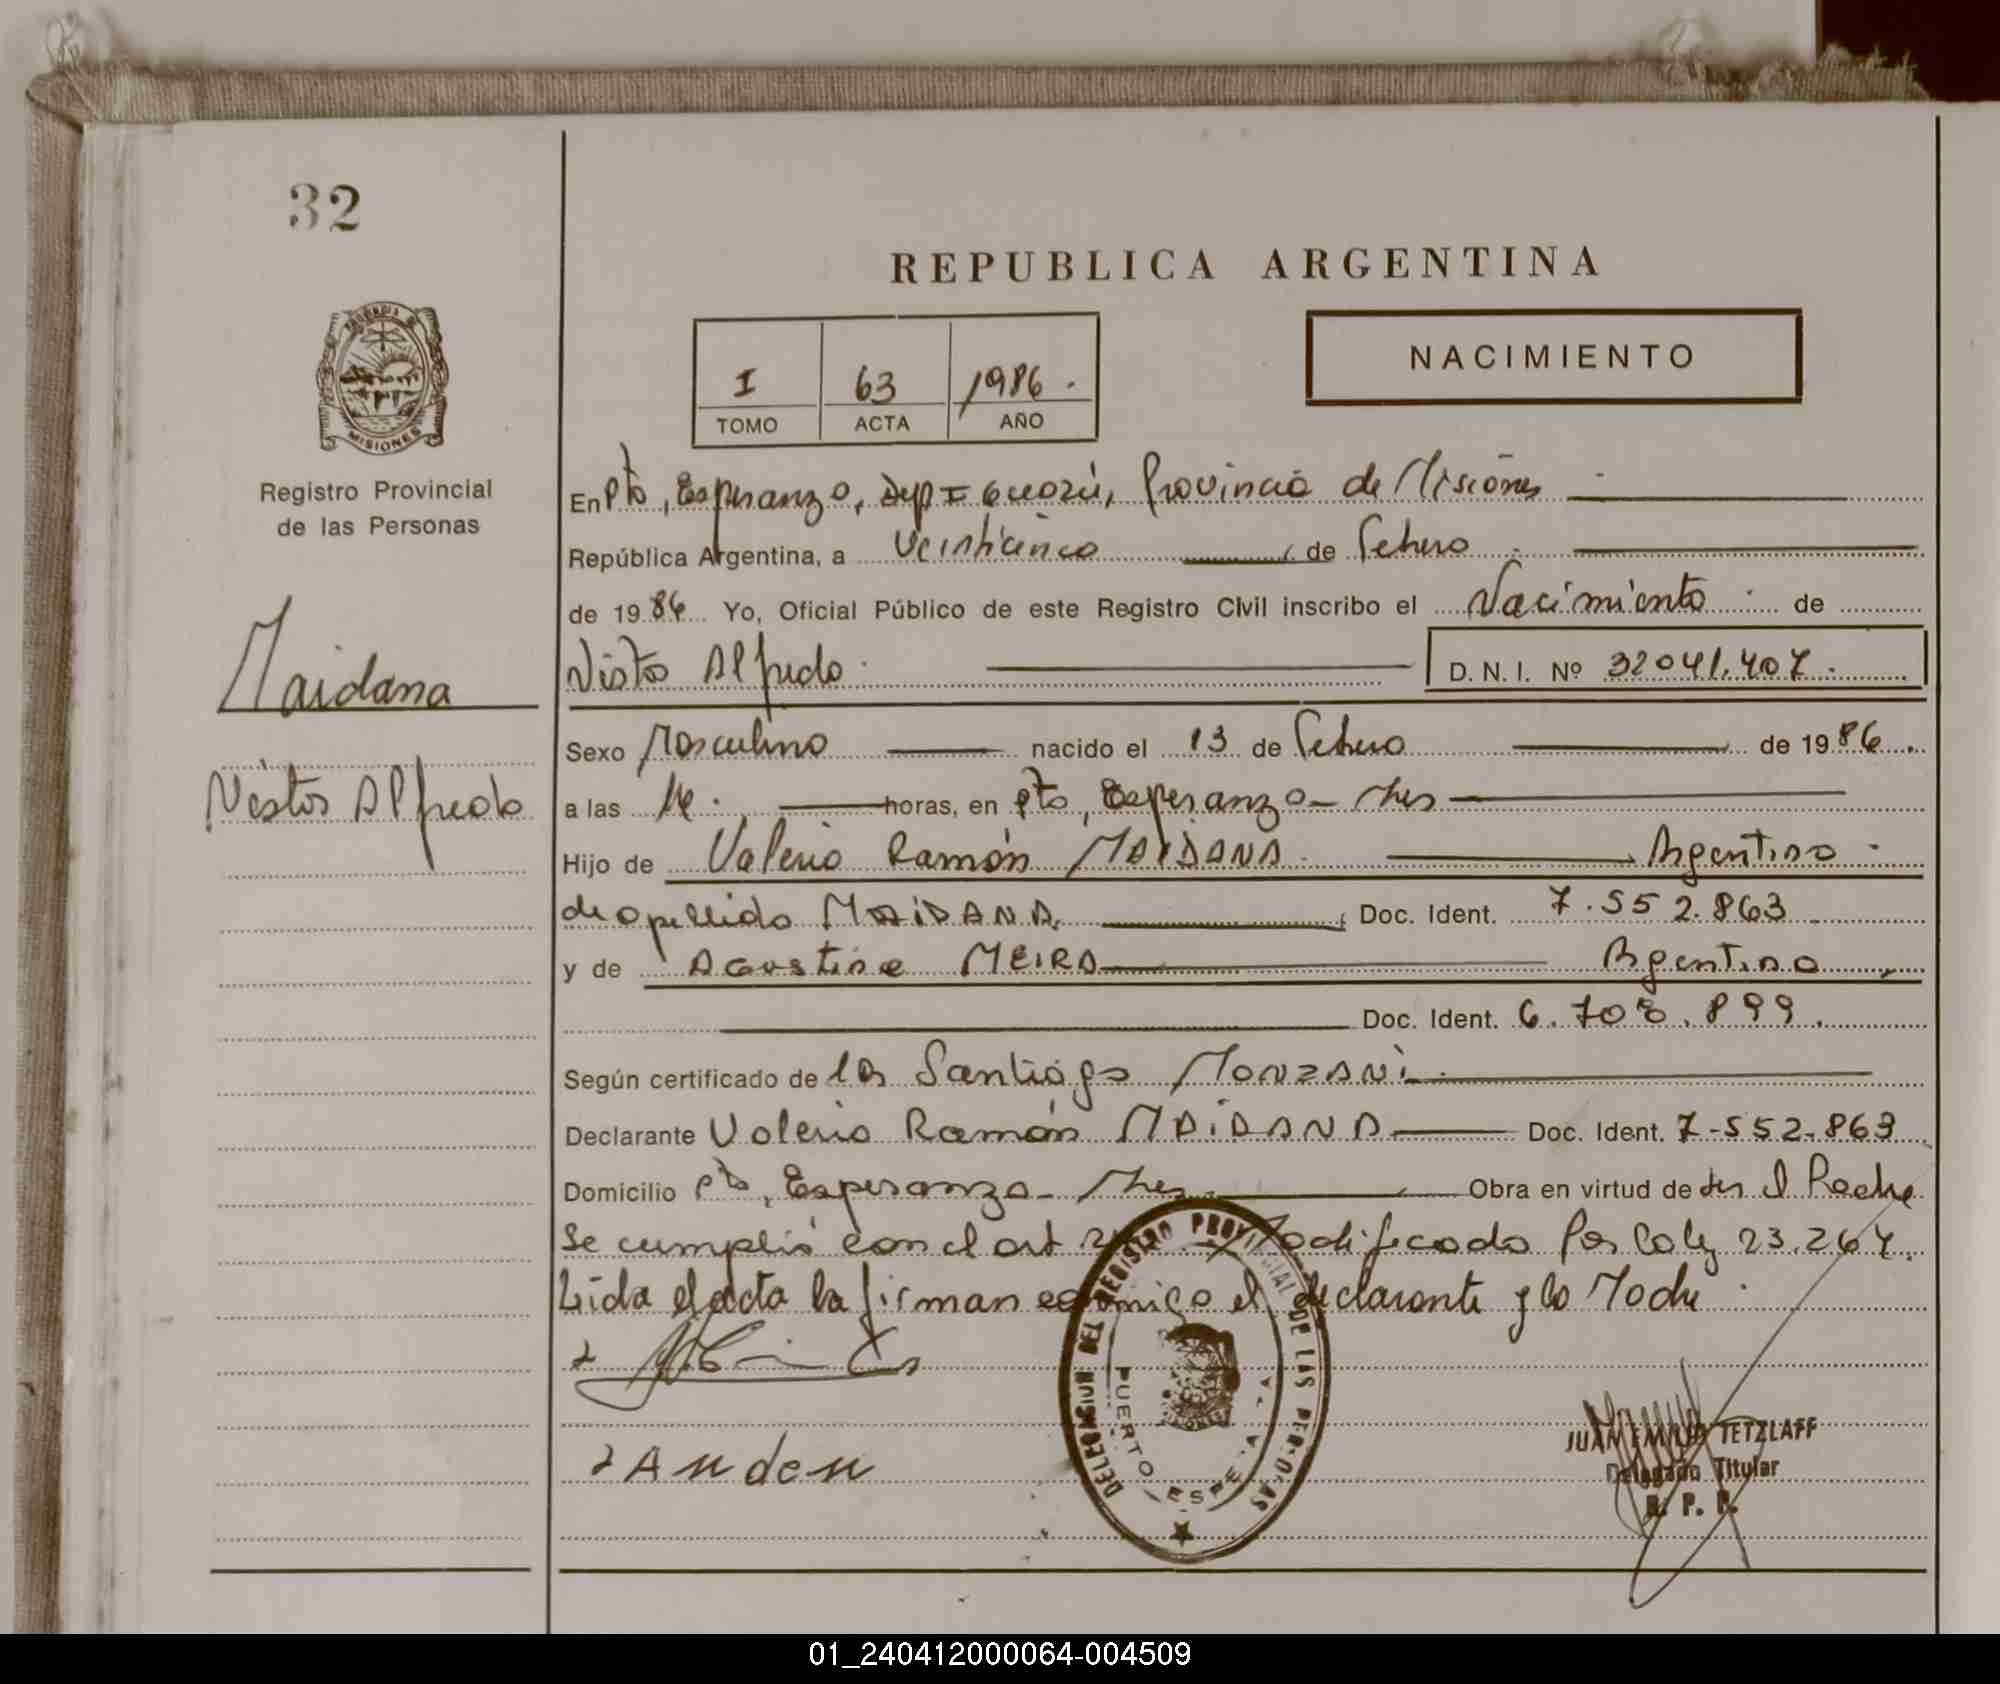 32
REPUBLICA ARGENTINA
NACIMIENTO
I 63 1986.
TOMO ACTA AÑO
PROVINCIA DE
MISIONES
Registro Provincial
de las Personas
Maidana
Nestor Alfredo
En Pto, Esperanza, Dep Iguazú, Provincia de Misiones
República Argentina, a Veinticinco de Febrero
de 1986 Yo, Oficial Público de este Registro Civil inscribo el Nacimiento de
Nestor Alfredo D. N. I. Nº 32041.407.
Sexo Masculino nacido el 13 de Febrero de 1986.
a las horas, en Pto, Esperanza - Mnes
Hijo de Valerio Ramón MAIDANA Argentino
de apellido MAIDANA. Doc. Ident. 7.552.863
y de Agustina MEIRA Argentina
Doc. Ident. 6.708.899.
Según certificado de Santiago MONZANI
Declarante Valerio Ramón MAIDANA Doc. Ident. 7-552-863
Domicilio Pto, Esperanza - Mnes Obra en virtud de ser el Padre
Se cumplió con el art Modificado Por la ley 23.264.
Leida el acta la firman conmigo el declarante y la Madre
DELEGACION DEL REGISTRO PROVINCIAL DE LAS PERSONAS
PUERTO ESPERANZA
JUAN EMILIO TETZLAFF
Delegado Titular
R. P. P.
01_240412000064-004509